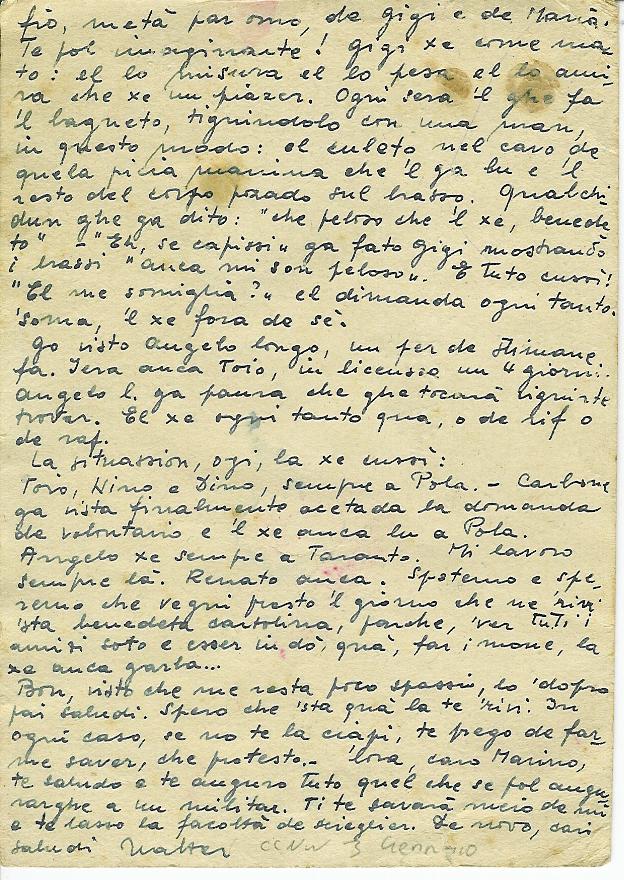 fio, metà par omo, de Gigi e de Maria.
Te pol imaginarte! Gigi xe come ma-
to: el lo misura el lo pesa el lo ami-
ra che xe un piazer. Ogni sera 'l ghe fa
'l bagneto, tignindolo con una man,
in questo modo: el culeto nel cavo de
quela picia manina che 'l ga lu e 'l
resto del corpo pozado sul brasso. Qualchi-
dun ghe ga dito: "che peloso che 'l xe, benede-
to" - "Eh, se capissi" ga fato Gigi mostrando
i brassi "anca mi son peloso". E tuto cussì!
"El me somiglia?" el dimanda ogni tanto.
'soma, 'l xe fora de sè.
Go visto Angelo longo, un per de stimane
fa. Iera anca Toio, in licensa un 4 giorni.
Angelo l. ga paura che ghe tocarà vignirte
trovar. El xe ogni tanto qua, o de lif o
de raf.
La situassion, ogi, la xe cussì:
Toio, Nino e Dino, sempre a Pola. - Carbone
ga visto finalmente acetada la domanda
de volontario e 'l xe anca lu a Pola.
Angelo xe sempre a Taranto. Mi lavoro
sempre là. Renato anca. Spetemo e spe-
remo che vegni presto 'l giorno che ne 'rivi
'sta benedeta cartolina, parche, 'ver tuti i
amisi soto e esser indò, quà, far i mone, la
xe anca garba...
Bon, visto che me resta poco spassio, lo 'dopro
pai saludi. Spero che 'sta quà la te 'rivi. In
ogni caso, se no te la ciapi, te prego de far-
me saver, che protesto. - 'lora, caro Marino,
te saludo e te auguro tuto quel che se pol augu-
rarghe a un militar. Ti te savarà meio de mi
e te lasso la facoltà de scieglier. De novo, cari
saludi Walter
3 Gennaio